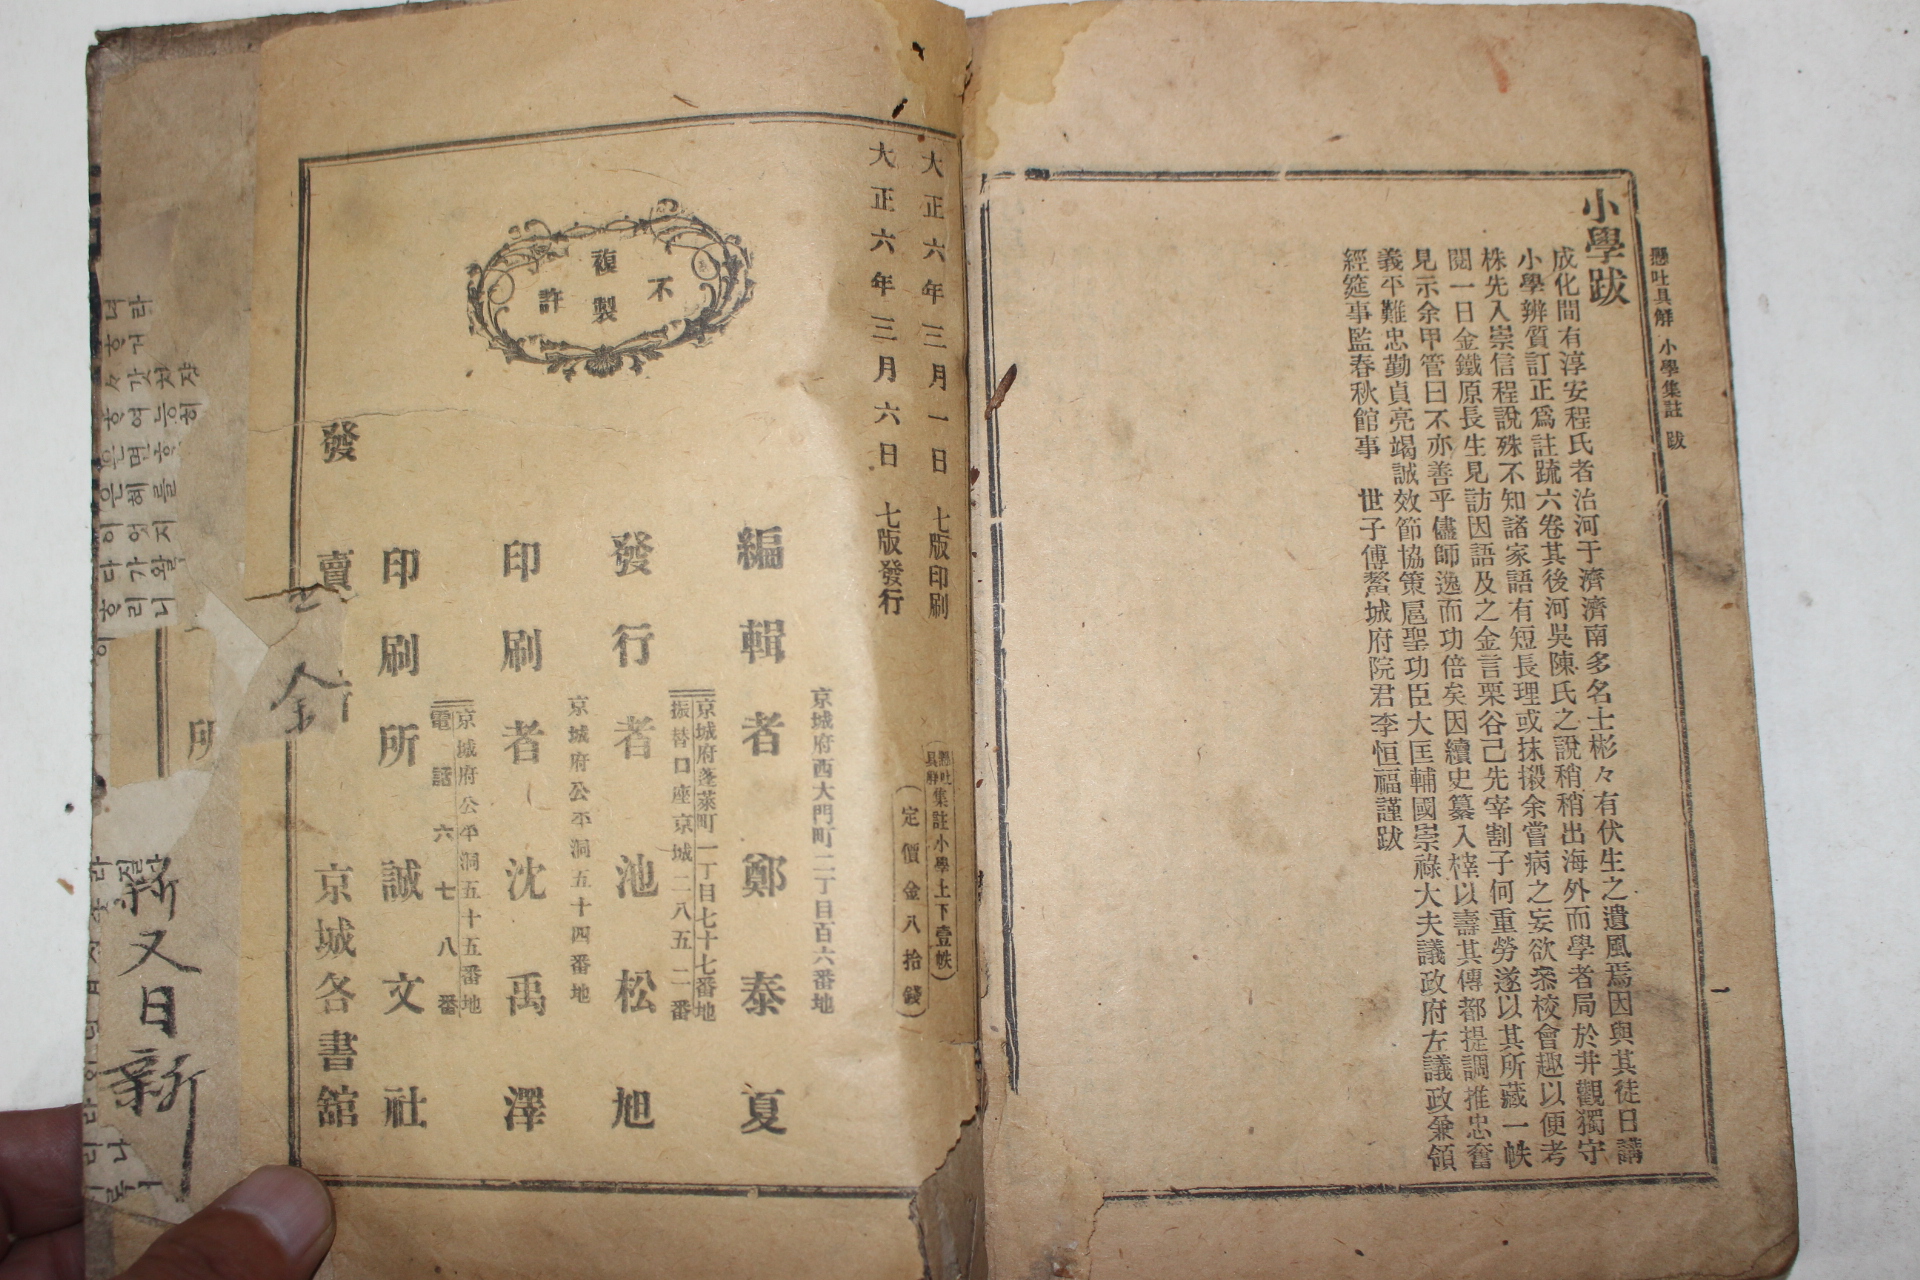 懸吐具解 小學集註 跋
一
小學跋
成化間有淳安程氏者治河于濟濟南多名士彬々有伏生之遺風焉因與其徒日講
小學辨質訂正爲註疏六卷其後河吳陳氏之說稍稍出海外而學者局於井觀獨守
株先入崇信程說殊不知諸家語有短長理或抹摋余嘗病之妄欲叅校會趣以便考
閱一日金鐵原長生見訪因語及之金言栗谷已先宰割子何重勞遂以其所藏一帙
見示余甲管曰不亦善乎儘師逸而功倍矣因續史纂入榟以壽其傳都提調推忠奮
義平難忠勤貞亮竭誠效節協策扈聖功臣大匡輔國崇祿大夫議政府左議政兼領
經筵事監春秋館事 世子傅鰲城府院君李恒福謹跋
大正六年三月一日 七版印刷
大正六年三月六日 七版發行
懸吐具解 集註小學上下壹帙
(定價金八拾錢)
不
複製
許
京城府西大門町二丁目百六番地
編輯者 鄭泰夏
京城府蓬萊町一丁目七十七番地
振替口座京城二八五二番
發行者 池松旭
京城府公平洞五十四番地
印刷者 沈禹澤
京城府公平洞五十五番地
電話六七八番
印刷所 誠文社
發賣 京城各書館
所
金
新又日新